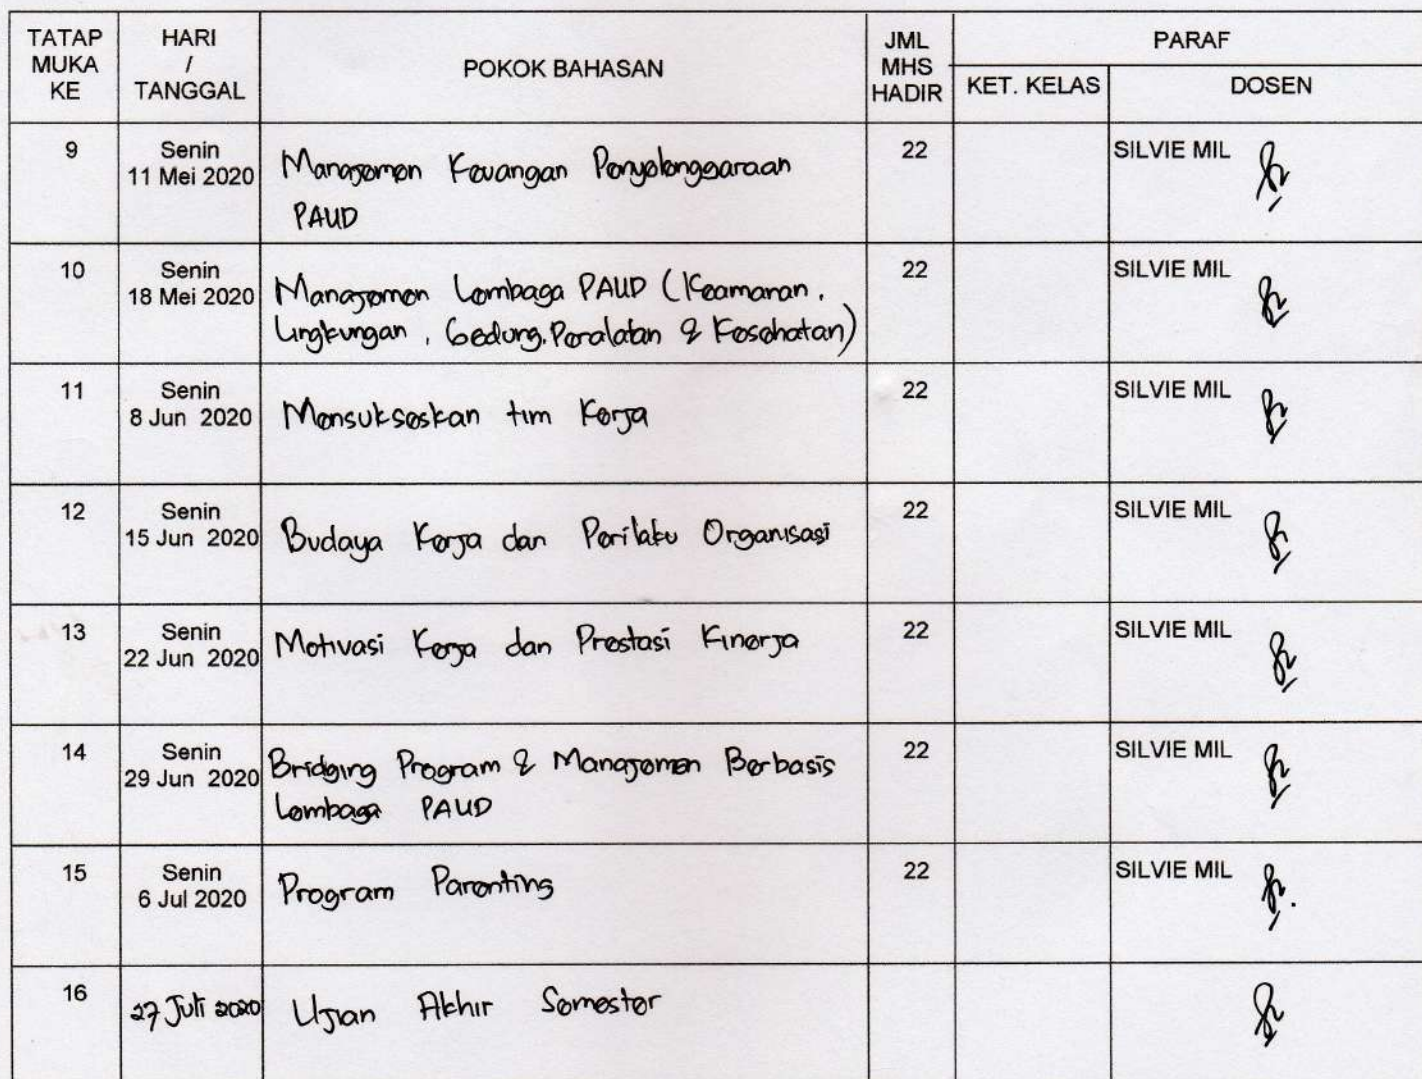 TATAP MUKA KE HARI / TANGGAL POKOK BAHASAN JML MHS HADIR PARAF
KET. KELAS DOSEN
9 Senin 11 Mei 2020 Manajemen Keuangan Penyelenggaraan PAUD 22 SILVIE MIL
10 Senin 18 Mei 2020 Manajemen Lembaga PAUD (Keamanan, Lingkungan, Gedung, Peralatan & Kesehatan) 22 SILVIE MIL
11 Senin 8 Jun 2020 Mensukseskan tim Kerja 22 SILVIE MIL
12 Senin 15 Jun 2020 Budaya Kerja dan Perilaku Organisasi 22 SILVIE MIL
13 Senin 22 Jun 2020 Motivasi Kerja dan Prestasi Kinerja 22 SILVIE MIL
14 Senin 29 Jun 2020 Bridging Program & Manajemen Berbasis Lembaga PAUD 22 SILVIE MIL
15 Senin 6 Jul 2020 Program Parenting 22 SILVIE MIL
16 27 Juli 2020 Ujian Akhir Semester